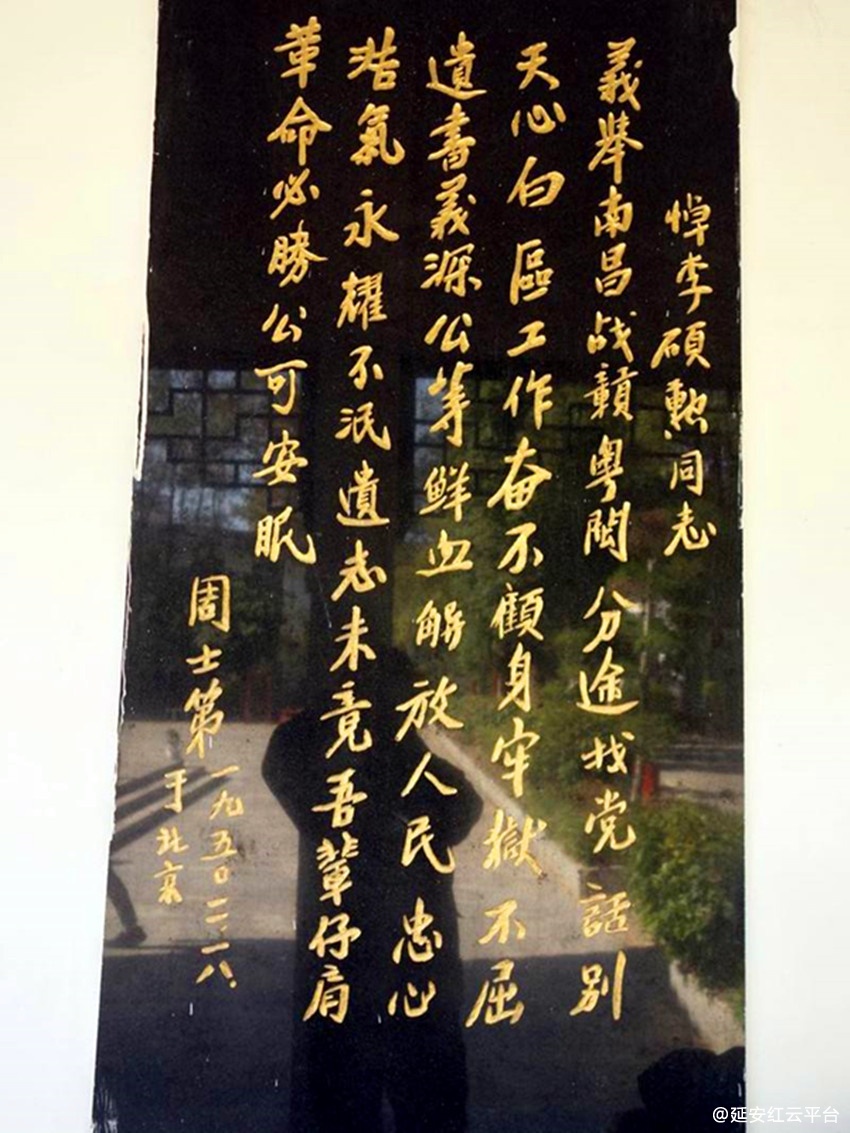 悼李硕勲同志
義舉南昌战贛粤閩分途找党話别
天心白區工作奋不顧身牢獄不屈
遺書義深公等鮮血解放人民忠心
浩氣永耀不泯遺志未竟吾輩仔肩
革命必勝公可安眠
周士第
一九五〇二·一八
于北京
@延安红云平台